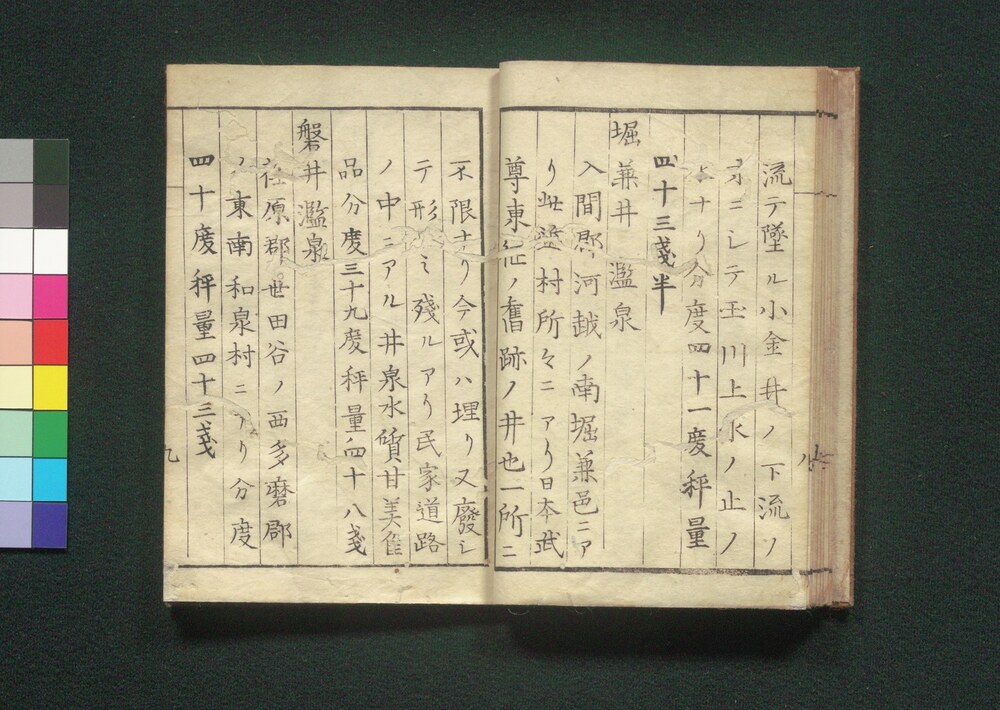 流テ墜ル小金井ノ下流ノ
ヿニシテ玉川上水ノ止ノ
ナリ分度四十一度秤量
四十三戔半
堀兼井 濫泉
入間郡河越ノ南堀兼邑ニア
リ此堂村所々ニアリ日本武
尊東征ノ舊跡ノ井也一所ニ
不限ナリ今或ハ埋リ又廢シ
テ形ノミ殘ルアリ民家道路
ノ中ニアル井泉水質甘美佳
品分度三十九度秤量四十八戔
磐井濫泉
荏原郡世田谷ノ西多磨郡
ノ東南和泉村ニアリ分度
四十度秤量四十三戔
八
九